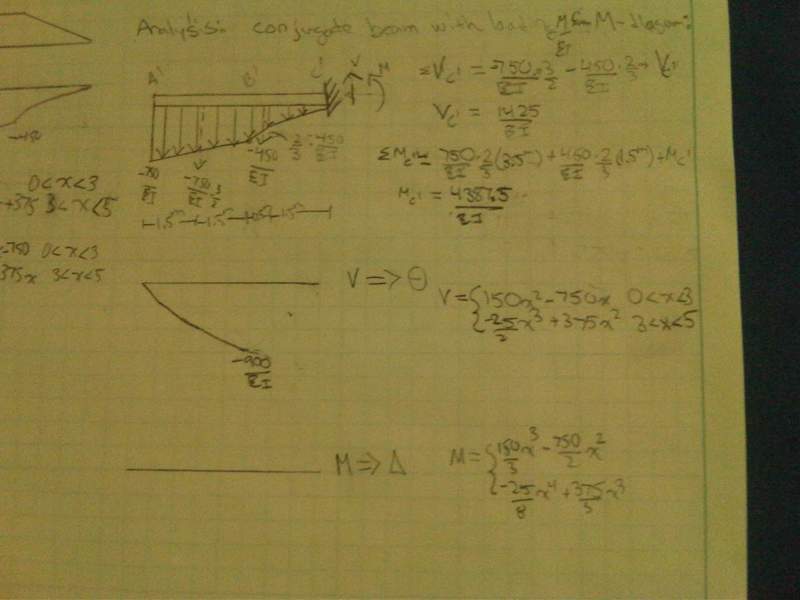 Analysis: conjugate beam with load M/EI from M-diagram:
A' B' C' V M
ΣVc' = -750/EI · 3/2 - 450/EI · 2/3 + Vc'
Vc' = 1425/EI
-450
-750/EI -750/EI · 3/2 -450/EI 2/3 · -450/EI
ΣMc' = 750/EI · 2/3 (3.5m) + 450/EI · 2/3 (1.5m) + Mc'
Mc' = 4387.5/EI
0<x<3
+375 3<x<5
1.5m 1.5m 1.5m
-750 0<x<3
375x 3<x<5
V => θ
V = { 150x² - 750x 0<x<3
-25/2 x³ + 375x² 3<x<5
-900/EI
M => Δ
M = { 150/3 x³ - 750/2 x²
-25/8 x⁴ + 375/3 x³